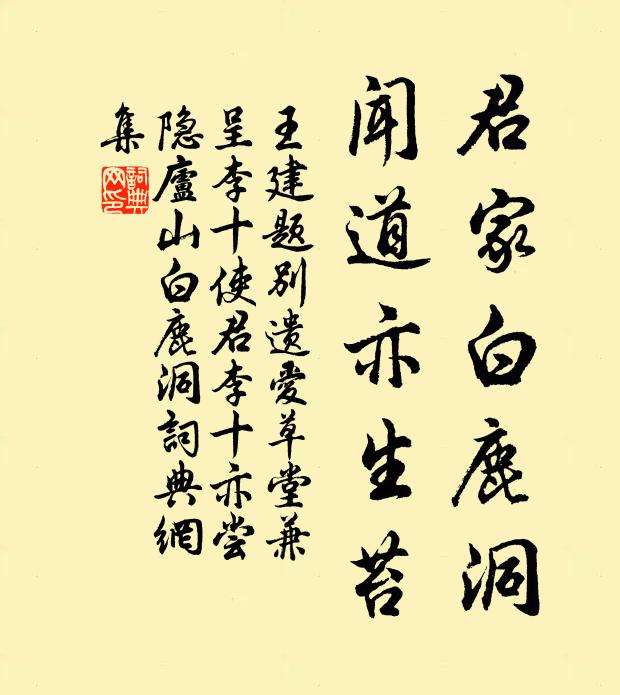 君家白鹿洞
聞道亦生苔
王建题别遗愛草堂兼
呈李十使君李十亦尝
隐廬山白鹿洞詞典網
集
詞典網印